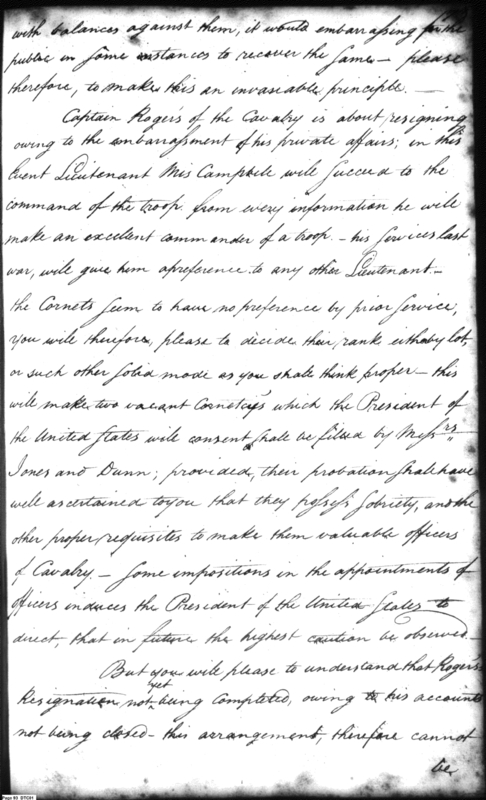 with balances against them, it would embarrassing for the
public in some instances to recover the same — please
therefore, to make this an invariable principle. —
Captain Rogers of the Cavalry is about resigning
owing to the embarrassment of his private affairs; in this
Event Lieutenant Mis Campbell will succeed to the
command of the troop. from every information he will
make an excellent commander of a troop. — his services last
war, will give him a preference to any other Lieutenant —
the Cornets seem to have no preference by prior service,
you will therefore, please to decide their rank either by lot,
or such other solid mode as you shall think proper — this
will make two vacant Cornetcys which the President of
the United States will consent shall be filled by Messrs
Jones and Dunn; provided, their probation shall have
well ascertained to you that they possess sobriety, and the
other proper requisites to make them valuable officers
of Cavalry. — Some impositions in the appointments of
officers induces the President of the United States to
direct, that in future the highest caution be observed —
But you will please to understand that Rogers's
Resignation not yet being completed, owing to his accounts
not being closed — this arrangement, therefore cannot
be
Page 83 DTC01